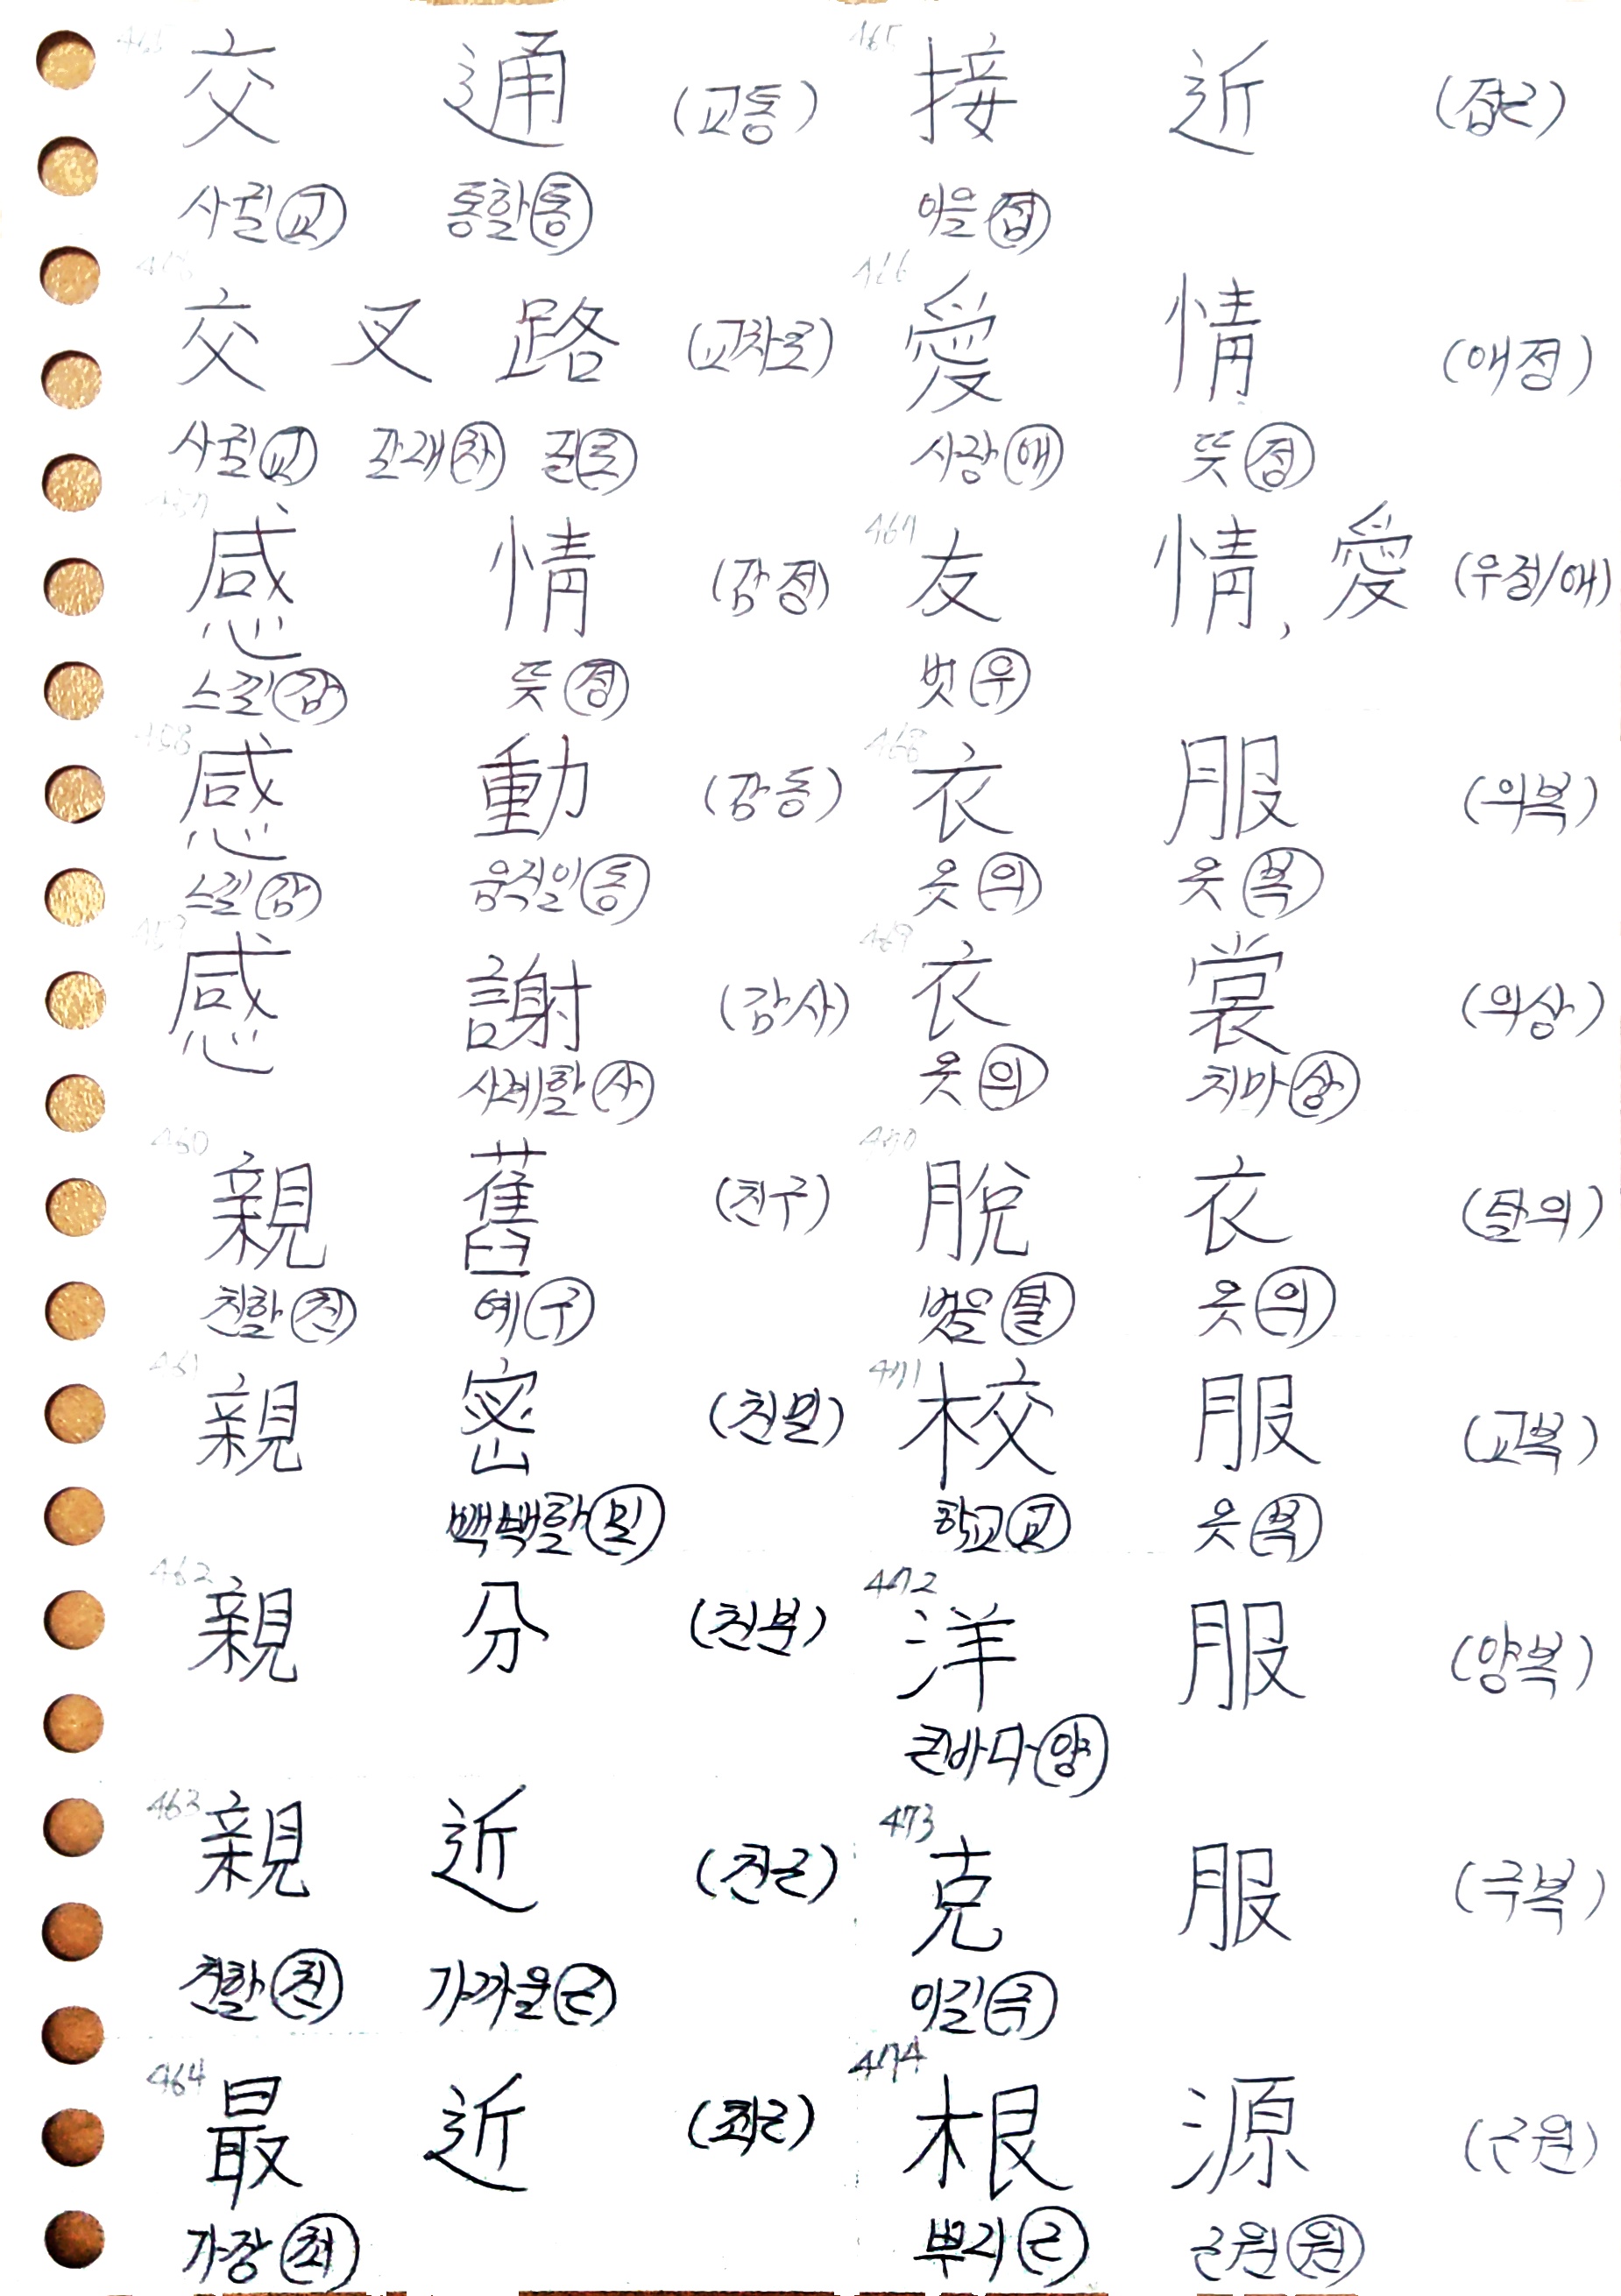 交 通 (교통)
사귈 교 통할 통
交 叉 路 (교차로)
사귈 교 갈래 차 길 로
457
感 情 (감정)
느낄 감 뜻 정
458
感 動 (감동)
느낄 감 움직일 동
459
感 謝 (감사)
사례할 사
460
親 舊 (친구)
친할 친 예 구
461
親 密 (친밀)
빽빽할 밀
462
親 分 (친분)
463
親 近 (친근)
친할 친 가까울 근
464
最 近 (최근)
가장 최
465
接 近 (접근)
이을 접
466
愛 情 (애정)
사랑 애 뜻 정
467
友 情, 愛 (우정/애)
벗 우
468
衣 服 (의복)
옷 의 옷 복
469
衣 裳 (의상)
옷 의 치마 상
470
脫 衣 (탈의)
벗을 탈 옷 의
471
校 服 (교복)
학교 교 옷 복
472
洋 服 (양복)
큰바다 양
473
克 服 (극복)
이길 극
474
根 源 (근원)
뿌리 근 근원 원